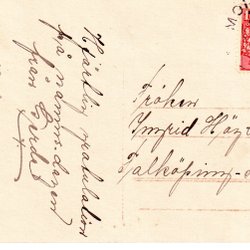 Hjärtlig gratulation
på namnsdagen
från Gerda
Fröken
Ingrid Hög
Falköping